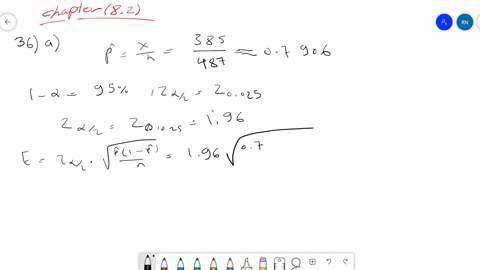 chapter (8.2)
36) a) p̂ = x/n = 385/487 ≈ 0.7906
1 - α = 95% , Zα/2 = Z0.025
Zα/2 = Z0.025 = 1.96
E = Zα/2 · √(p̂(1-p̂)/n) = 1.96 √0.7
RN